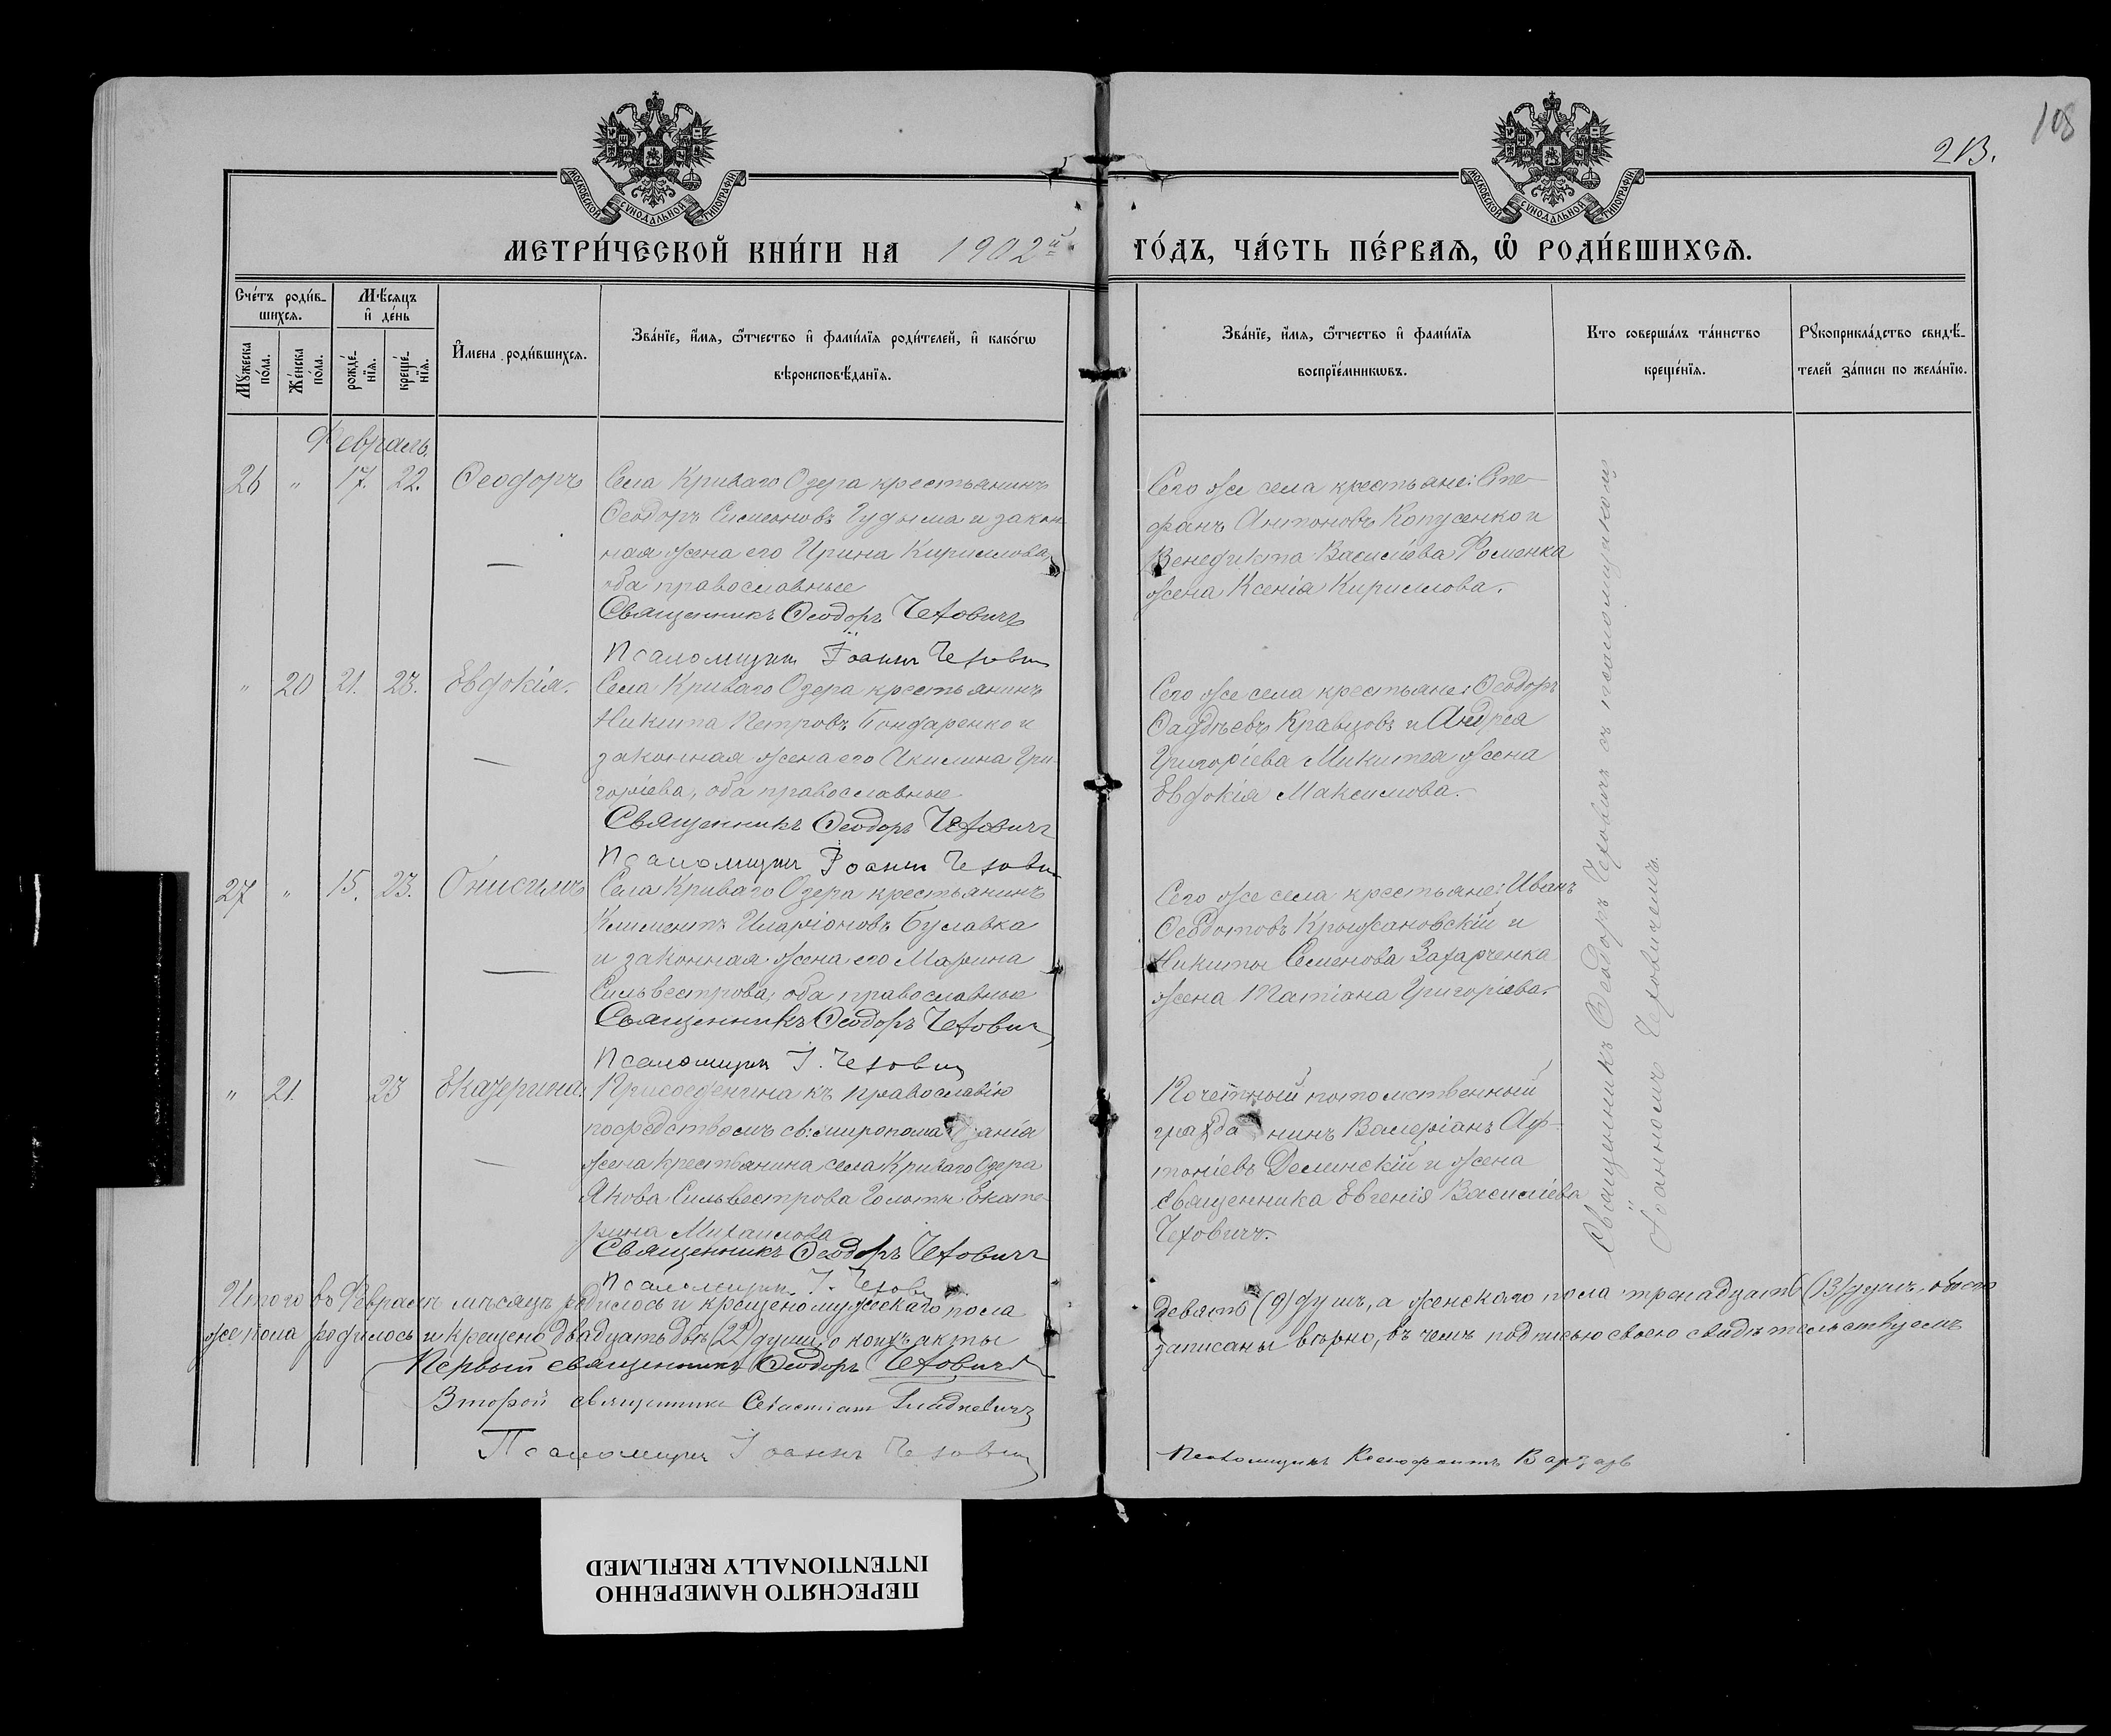 108
213.
МОСКОВСКОЙ СѴНОДАЛЬНОЙ ТИПОГРАФІИ
МОСКОВСКОЙ СѴНОДАЛЬНОЙ ТИПОГРАФІИ
МЕТРИ́ЧЕСКОЙ КНИ́ГИ НА 1902й
ГО́ДЪ, ЧА́СТЬ ПЕ́РВАѦ, Ѽ РОДИ́ВШИХСѦ.
Сче́тъ роди́в-
шихсѧ.
Мѣ́сяцъ
и҆ де́нь
Мꙋ́жеска по́ла.
Же́нска по́ла.
рожде́-
нїѧ.
креще́-
нїѧ.
И҆мена роди́вшихсѧ.
Зва́нїе, и҆́мѧ, ѻ҆́тчество и҆ фамѝлїѧ роди́телей, и҆ како́гѡ
вѣроисповѣ́данїѧ.
Зва́нїе, и҆́мѧ, ѻ҆́тчество и҆ фамѝлїѧ
воспрїе́мникѡвъ.
Кто соверша́лъ та́инство
креще́нїѧ.
Рꙋкоприкла́дство свидѣ́-
телей за́писи по жела́нїю.
Февраль.
26 " 17. 22. Ѳеодоръ
Села Криваго Озера крестьянинъ
Ѳеодоръ Симеоновъ Гудыма и закон
ная жена его Ирина Кириллова,
оба православные
Священникъ Ѳеодоръ Чеховичъ
Псаломщик Іоанн Чехович
Сего же села крестьяне: Сте-
фанъ Антоновъ Копусенко и
Венедикта Василіева Роменка
жена Ксенія Кириллова.
" 20 21. 23. Евдокія.
Села Криваго Озера крестьянинъ
Никита Петровъ Бондаренко и
законная жена его Акилина Гри-
горіева, оба православные
Священникъ Ѳеодоръ Чеховичъ
Псаломщик Іоанн Чехович
Сего же села крестьяне: Ѳеодоръ
Ѳаддѣевъ Кравцовъ и Андрея
Григоріева Микитея жена
Евдокія Максимова.
27 " 15. 23. Онисимъ
Села Криваго Озера крестьянинъ
Климентъ Иларіоновъ Булавка
и законная жена его Марина
Сильвестрова, оба православные
Священникъ Ѳеодоръ Чехович
Псаломщик І. Чехович
Сего же села крестьяне: Иванъ
Ѳеодотовъ Крыжановскій и
Никиты Семенова Захарченка
жена Татіана Григоріева.
" 21. 23 Екатерина.
Присоединена къ православію
посредствомъ св: миропомазанія
жена крестьянина села Криваго Озера
Якова Сильвестрова Голоты Екате-
рина Михаилова
Священникъ Ѳеодоръ Чеховичъ
Псаломщик І. Чехович
Почетный потомственный
гражданинъ Валеріанъ Аф-
тоніевъ Делинскій и жена
священника Евгенія Василіева
Чеховичъ.
Священникъ Ѳеодоръ Чеховичъ съ псаломщикомъ
Іоанномъ Чеховичемъ.
Итого въ Февралѣ мѣсяцѣ родилось и крещено мужескаго пола
девять (9) душъ, а женскаго пола тринадцать (13) душъ, обоего
же пола родилось и крещено двадцать двѣ (22) души, о коихъ акты
записаны вѣрно, въ чемъ подписью своею свидѣтельствуемъ
Первый священникъ Ѳеодоръ Чеховичъ
Второй священникъ Севастіанъ
Псаломщик Іоаннъ Чехович
Псаломщикъ Ксенофонтъ Варзарь
ПЕРЕСНЯТО НАМЕРЕННО
INTENTIONALLY REFILMED